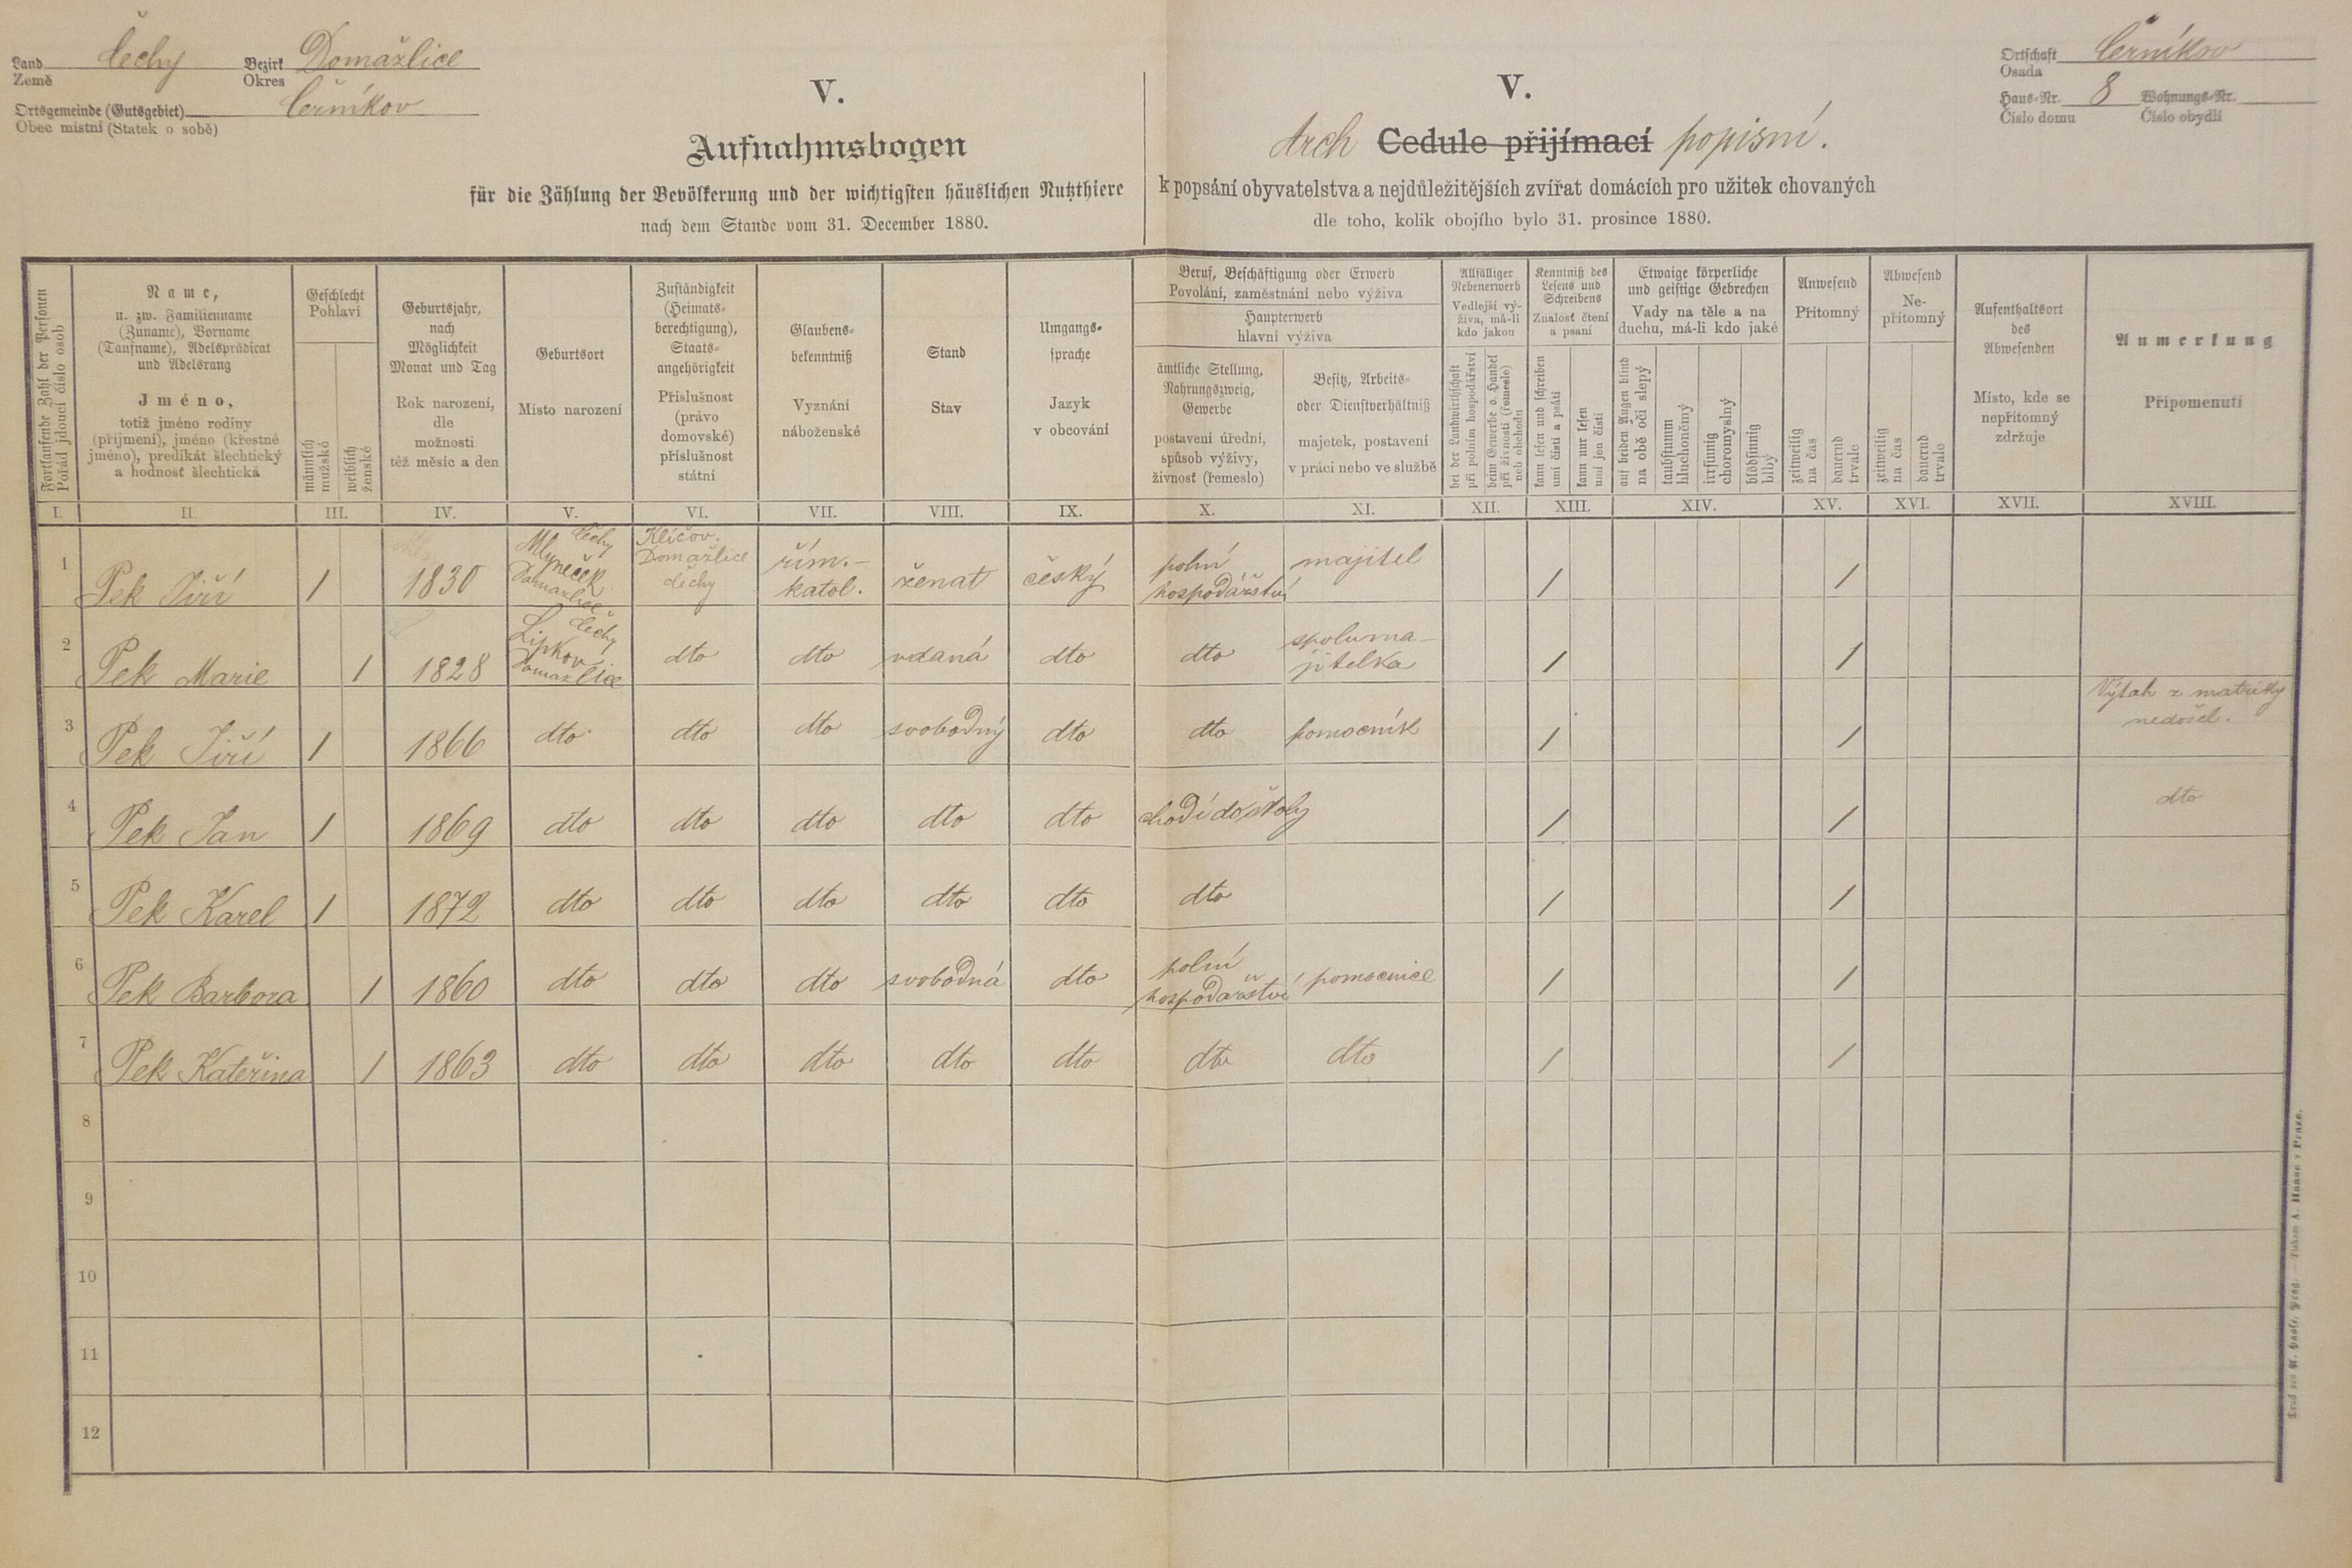 Land Čechy Bezirk Domažlice
Země Okres
Ortsgemeinde (Gutsgebiet) Černíkov
Obec místní (Statek o sobě)
V.
Aufnahmsbogen
für die Zählung der Bevölkerung und der wichtigsten häuslichen Nutzthiere
nach dem Stande vom 31. December 1880.
V.
Arch Cedule přijímací popisní.
k popsání obyvatelstva a nejdůležitějších zvířat domácích pro užitek chovaných
dle toho, kolik obojího bylo 31. prosince 1880.
Ortschaft Černíkov
Osada
Haus-Nr. 8 Wohnungs-Nr.
Číslo domu Číslo obydlí
Fortlaufende Zahl der Personen
Pořád jdoucí číslo osob
Name,
u. zw. Familienname
(Zuname), Vorname
(Taufname), Adelsprädicat
und Adelsrang
Jméno,
totiž jméno rodiny
(příjmení), jméno (křestné
jméno), predikát šlechtický
a hodnosť šlechtická
Geschlecht
Pohlaví
männlich
mužské
weiblich
ženské
Geburtsjahr,
nach
Möglichkeit
Monat und Tag
Rok narození,
dle
možnosti
též měsíc a den
Geburtsort
Místo narození
Zuständigkeit
(Heimats-
berechtigung),
Staats-
angehörigkeit
Příslušnost
(právo
domovské)
příslušnost
státní
Glaubens-
bekenntniß
Vyznání
náboženské
Stand
Stav
Umgangs-
sprache
Jazyk
v obcování
Beruf, Beschäftigung oder Erwerb
Povolání, zaměstnání nebo výživa
Haupterwerb
hlavní výživa
ämtliche Stellung,
Nahrungszweig,
Gewerbe
postavení úřední,
spůsob výživy,
živnosť (řemeslo)
Besitz, Arbeits-
oder Dienstverhältniß
majetek, postavení
v práci nebo ve službě
Allfälliger
Nebenerwerb
Vedlejší vý-
živa, má-li
kdo jakou
bei der Landwirthschaft
při polním hospodářství
beim Gewerbe o. Handel
při živnosti (řemesle)
neb obchodu
Kenntniß des
Lesens und
Schreibens
Znalosť čtení
a psaní
kann lesen und schreiben
umí čísti a psáti
kann nur lesen
umí jen čísti
Etwaige körperliche
und geistige Gebrechen
Vady na těle a na
duchu, má-li kdo jaké
auf beiden Augen blind
na obě oči slepý
taubstumm
hluchoněmý
irrsinnig
choromyslný
blödsinnig
blbý
Anwesend
Přítomný
zeitweilig
na čas
dauernd
trvale
Abwesend
Ne-
přítomný
zeitweilig
na čas
dauernd
trvale
Aufenthaltsort
des
Abwesenden
Místo, kde se
nepřítomný
zdržuje
Anmerkung
Připomenutí
I. II. III. IV. V. VI. VII. VIII. IX. X. XI. XII. XIII. XIV. XV. XVI. XVII. XVIII.
1 Pek Jiří 1 1830 Mlýneček Domažlice Čechy Klíčov. Domažlice čechy řím.- katol. ženat český polní hospodářství majitel 1 1
2 Pek Marie 1 1828 Lipkov Domažlice Čechy dto dto vdaná dto dto spoluma- jitelka 1 1
3 Pek Jiří 1 1866 dto dto dto svobodný dto dto pomocník 1 1 Výtah z matriky nedošel.
4 Pek Jan 1 1869 dto dto dto dto dto chodí do školy 1 1 dto
5 Pek Karel 1 1872 dto dto dto dto dto dto 1 1
6 Pek Barbora 1 1860 dto dto dto svobodná dto polní hospodářství pomocnice 1 1
7 Pek Kateřina 1 1863 dto dto dto dto dto dto dto 1 1
8
9
10
11
12
Tiskem A. Haase v Praze.